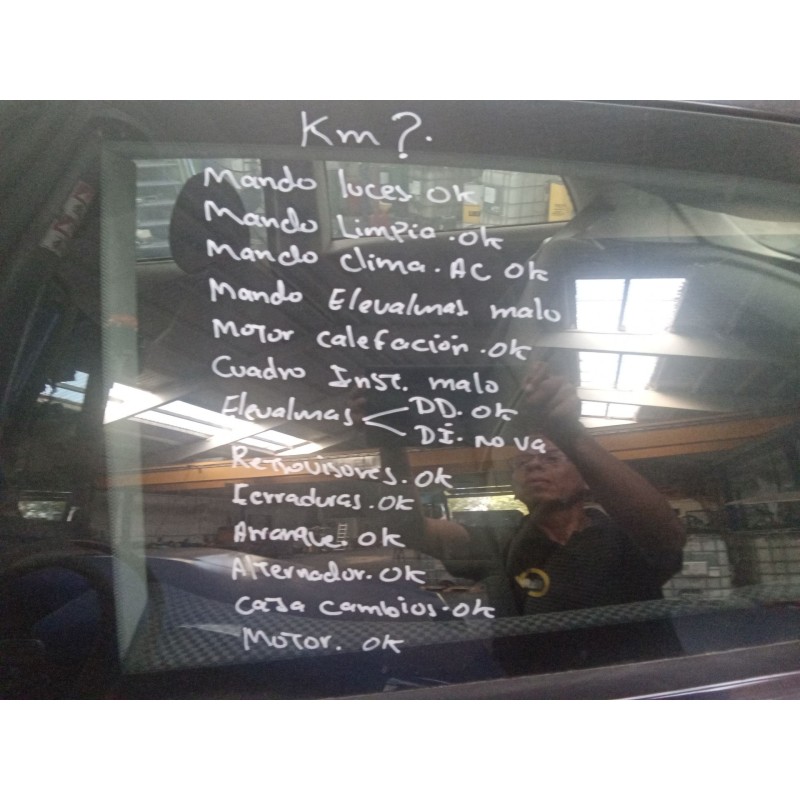 Km?.
Mando luces. OK
Mando Limpia. Ok
Mando Clima. AC OK
Mando Elevalunas malo
Motor Calefacción. OK
Cuadro Inst. malo
Elevalunas < DD. OK
DI. no va
Retrovisores. OK
Cerraduras. OK
Arranque. OK
Alternador. OK
Caja Cambios. Ok
Motor. OK